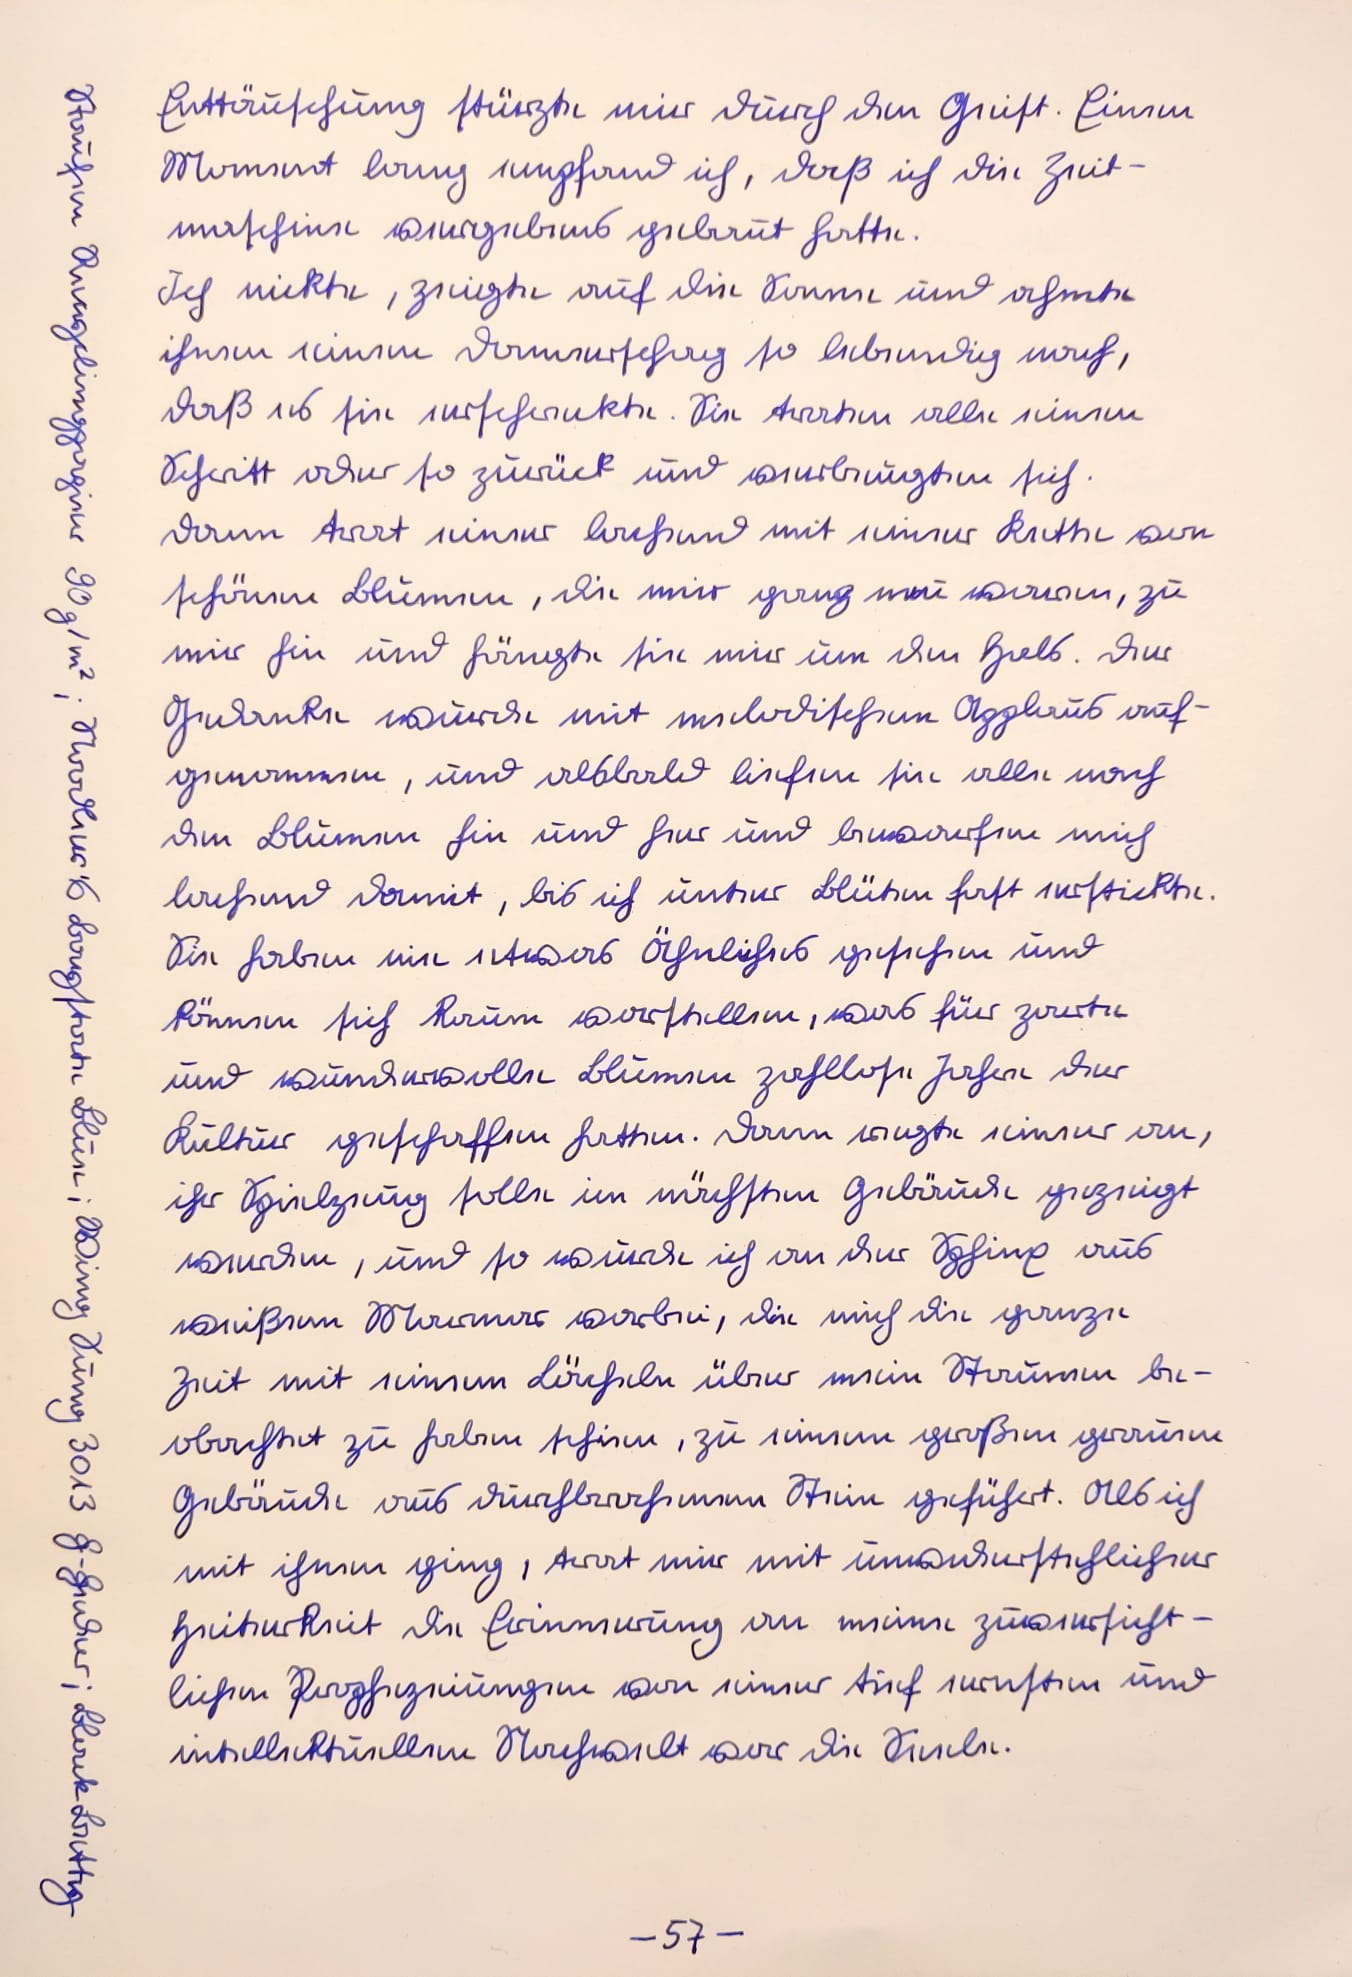 Enttäuschung stürzte mir durch den Geist. Einen
Moment lang empfand ich, daß ich die Zeit-
maschine vergebens gebaut hatte.
Ich nickte, zeigte auf die Sonne und ahmte
ihnen einen Donnerschlag so lebendig nach,
daß es sie erschreckte. Sie traten alle einen
Schritt oder so zurück und verbeugten sich.
Dann trat einer lachend mit einer Kette von
schönen Blumen, die mir ganz neu waren, zu
mir hin und hängte sie mir um den Hals. Der
Gedanke wurde mit melodischem Applaus auf-
genommen, und alsbald liefen sie alle nach
den Blumen hin und her und bewarfen mich
lachend damit, bis ich unter Blüten fast erstickte.
Sie haben nie etwas Ähnliches gesehen und
können sich kaum vorstellen, was für zarte
und wundervolle Blumen zahllose Jahre der
Kultur geschaffen hatten. Dann regte einer an,
ihr Spielzeug solle im nächsten Gebäude gezeigt
werden, und so wurde ich an der Sphinx aus
weißem Marmor vorbei, die mich die ganze
Zeit mit einem Lächeln über mein Staunen be-
obachtet zu haben schien, zu einem großen grauen
Gebäude aus durchbrochenem Stein geführt. Als ich
mit ihnen ging, trat mir mit unwiderstehlicher
Heiterkeit die Erinnerung an meine zuversicht-
lichen Prophezeiungen von einer tief ernsten und
intellektuellen Nachwelt vor die Seele.
-57-
Staufen Recyclingpapier 90g/m²; Noodler's Bay State Blue; Wing Sung 3013 F-Feder; Black Letter